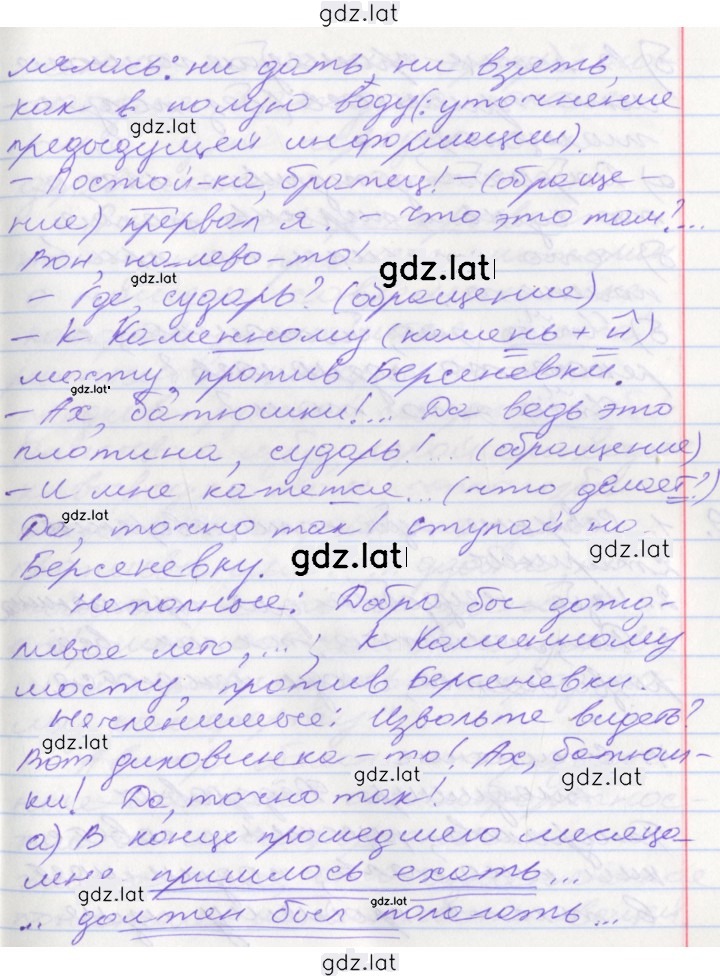 gdz.lat
лялась: ни дать, ни взять,
как в полую воду(: уточнение
gdz.lat
предыдущей информации).
– Постой-ка, братец! – (обраще-
ние) прервал я. – Что это там?...
Вон, налево-то!
gdz.lat
gdz.lat
– Где, сударь? (обращение)
– К Каменному (камень + н)
мосту, против Берсеневки.
gdz.lat
– Ах, батюшки!... Да ведь это
плотина, сударь!... (обращение)
– И мне кажется... (что делает?)
gdz.lat
Да, точно так! ступай на
gdz.lat
gdz.lat
Берсеневку.
Неполные: Добро бы дожд-
ливое лето,...; К Каменному
мосту, против Берсеневки.
Нечленимые: Извольте видеть?
gdz.lat
Вот диковинка-то! Ах, батюш-
gdz.lat
gdz.lat
ки! Да, точно так!
а) В конце прошедшего месяца
мне пришлось ехать...
gdz.lat
gdz.lat
... должен был полагать...
gdz.lat